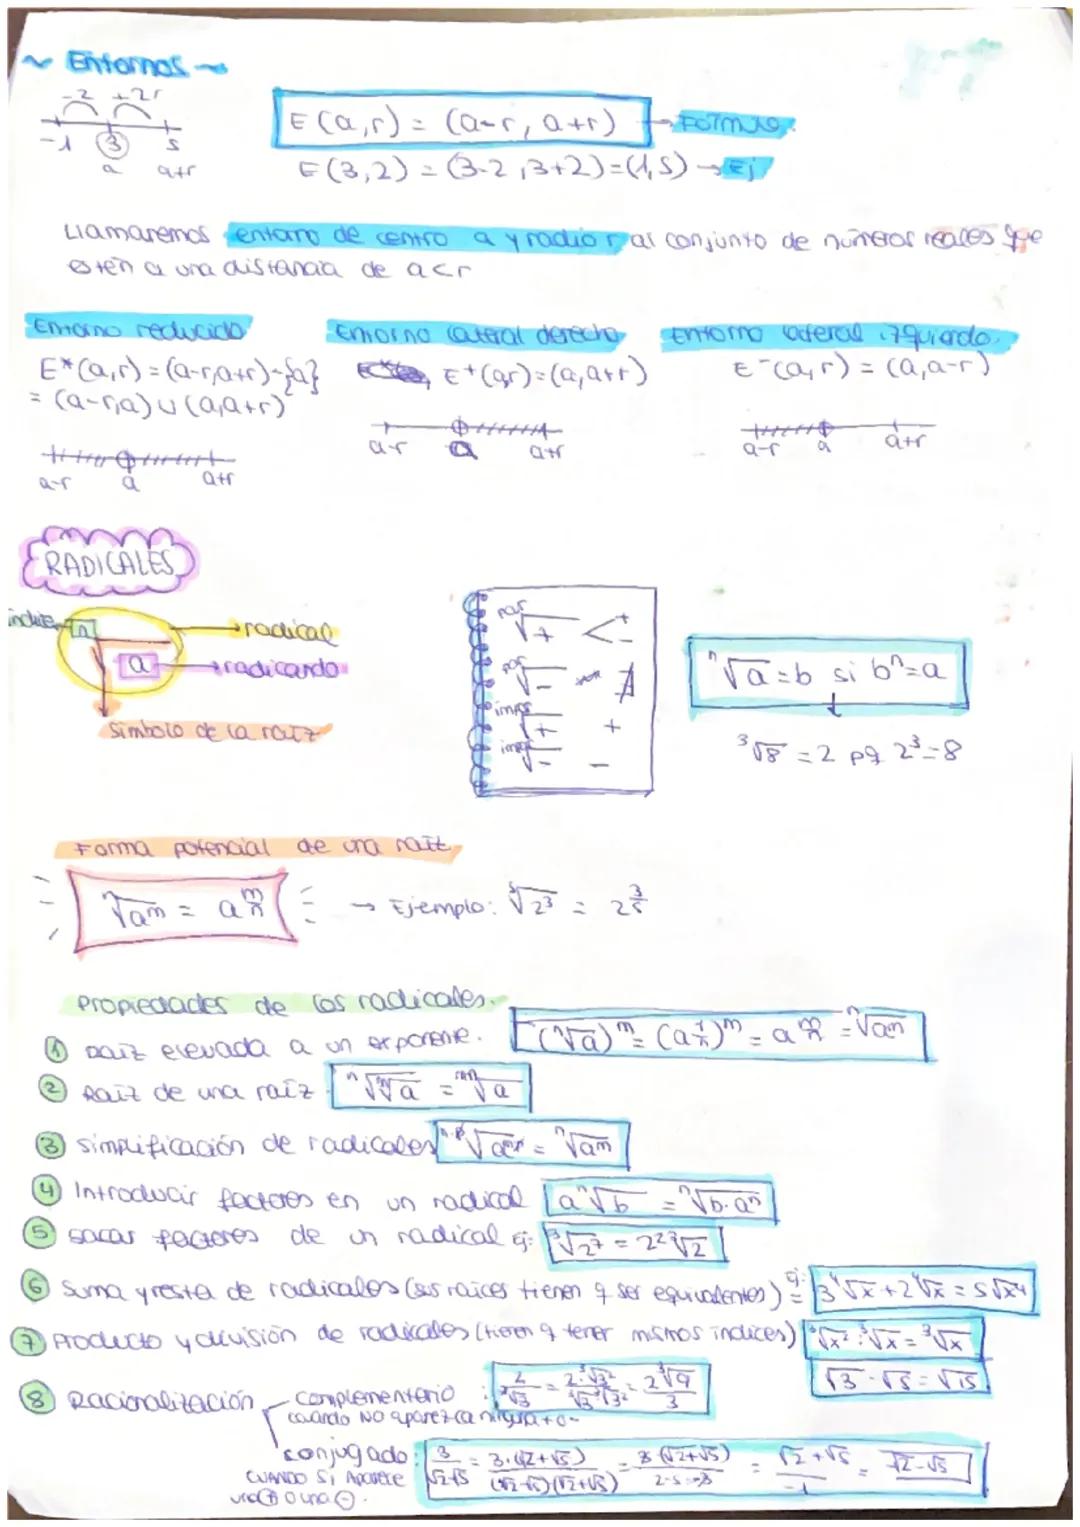 ~ Entornos ~
-2 +2r
-1 3 5
a a+r
E(a,r) = (a-r, a+r) → Fórmula.
E(3,2) = (3-2, 3+2) = (1,5) → Ej
Llamaremos entorno de centro a y radio r, al conjunto de números reales que
estén a una distancia de a<r
Entorno reducido
E*(a,r) = (a-r,a+r)-{a}
= (a-r,a) ∪ (a,a+r)
a-r a a+r
Entorno lateral derecho
E⁺(a,r) = (a,a+r)
a-r a a+r
Entorno lateral izquierdo.
E⁻(a,r) = (a,a-r)
a-r a a+r
RADICALES
índice n → radical
a → radicando
Símbolo de la raíz
par √+ < + -
par √- ∄
impar √+ +
impar √- -
ⁿ√a = b si bⁿ=a
³√8 = 2 pq 2³=8
Forma potencial de una raíz
ⁿ√aᵐ = a^(m/n) → Ejemplo: ⁵√2³ = 2^(3/5)
Propiedades de los radicales.
① Raíz elevada a un exponente. (ⁿ√a)ᵐ = (a^(1/n))ᵐ = a^(m/n) = ⁿ√aᵐ
② Raíz de una raíz ⁿ√ᵐ√a = ᵐⁿ√a
③ simplificación de radicales ⁿ·ᵖ√aᵐᵖ = ⁿ√aᵐ
④ Introducir factores en un radical a ⁿ√b = ⁿ√b·aⁿ
⑤ sacar factores de un radical Ej: ³√2⁷ = 2² ³√2
⑥ Suma y resta de radicales (sus raíces tienen q ser equivalentes) ej: 3⁴√x + 2⁴√x = 5√x⁴
⑦ Producto y división de radicales (tienen q tener mismos índices) ³√x² : ³√x = ³√x
√3 · √5 = √15
⑧ Racionalización
complementario : 2/³√3 = 2·³√3²/³√3·³√3² = 2³√9/3
cuando NO aparezca ningún + o -
conjugado: 3/√2-√5 = 3·(√2+√5)/(√2-√5)(√2+√5) = 3(√2+√5)/2-5=-3 = √2+√5/-1 = √2-√5
CUANDO SI APARECE
una ⊕ o una ⊖.